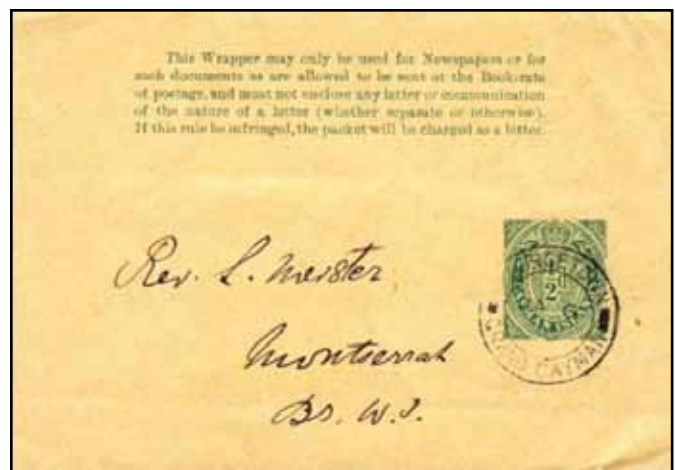 This Wrapper may only be used for Newspapers or for
such documents as are allowed to be sent at the Bookrate
of postage, and must not enclose any letter or communication
of the nature of a letter (whether separate or otherwise).
If this rule be infringed, the packet will be charged as a letter.
Rev. L. Meister
Montserrat
Br. W. I.
1/2d
GEORGETOWN
GRAND CAYMAN